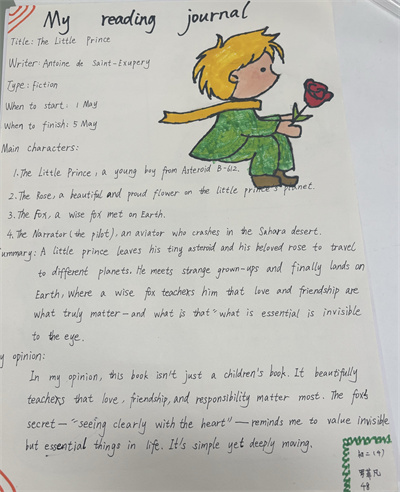 My reading journal
Title: The Little Prince
Writer: Antoine de Saint-Exupery
Type: fiction
When to start: 1 May
When to finish: 5 May
Main characters:
1. The Little Prince, a young boy from Asteroid B-612.
2. The Rose, a beautiful and proud flower on the little prince's planet.
3. The Fox, a wise fox met on Earth.
4. The Narrator (the pilot), an aviator who crashes in the Sahara desert.
ummary: A little prince leaves his tiny asteroid and his beloved rose to travel
to different planets. He meets strange grown-ups and finally lands on
Earth, where a wise fox teachers him that love and friendship are
what truly matter — and what is that "what is essential is invisible
to the eye.
y opinion:
In my opinion, this book isn't just a children's book. It beautifully
teachers that love, friendship, and responsibility matter most. The fox's
secret — "seeing clearly with the heart" — reminds me to value invisible
but essential things in life. It's simple yet deeply moving.
初二(4)
48